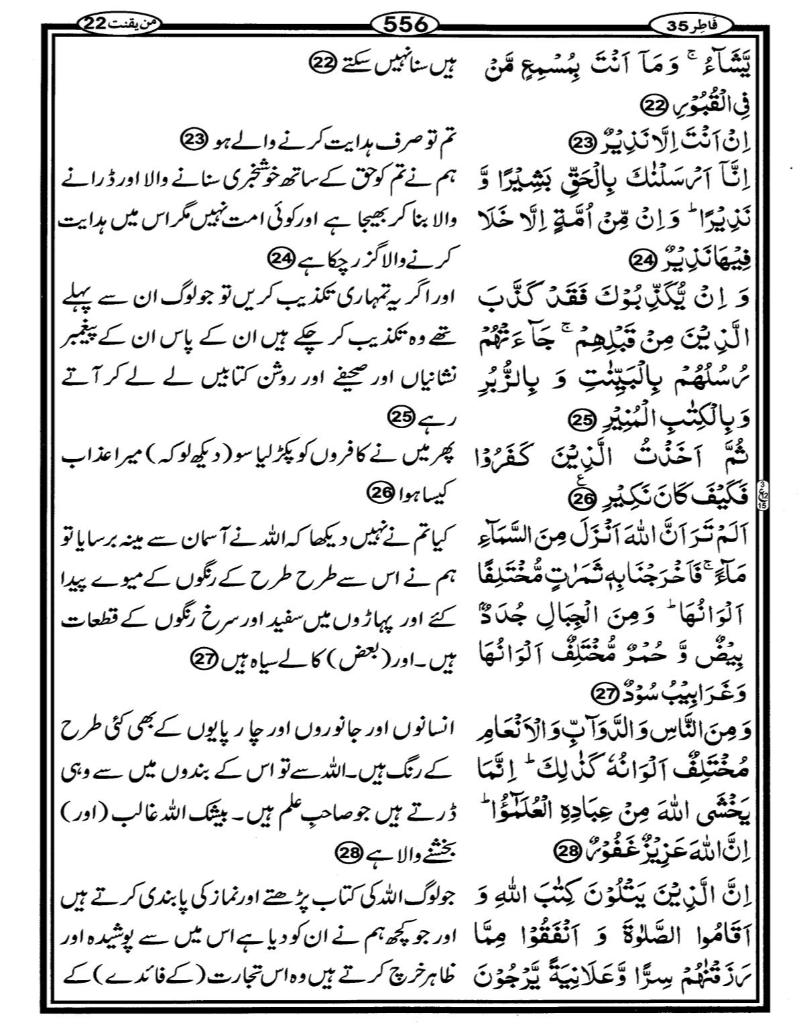 فَاطِر 35
556
من یقنت 22
یَّشَآءُ ۚ وَ مَاۤ اَنْتَ بِمُسْمِعٍ مَّنْ
فِی الْقُبُوْرِ 22
اِنْ اَنْتَ اِلَّا نَذِیْرٌ 23
اِنَّاۤ اَرْسَلْنٰكَ بِالْحَقِّ بَشِیْرًا وَّ
نَذِیْرًا ؕ وَ اِنْ مِّنْ اُمَّةٍ اِلَّا خَلَا
فِیْهَا نَذِیْرٌ 24
وَ اِنْ یُّكَذِّبُوْكَ فَقَدْ كَذَّبَ
الَّذِیْنَ مِنْ قَبْلِهِمْ ۚ جَآءَتْهُمْ
رُسُلُهُمْ بِالْبَیِّنٰتِ وَ بِالزُّبُرِ
وَ بِالْكِتٰبِ الْمُنِیْرِ 25
ثُمَّ اَخَذْتُ الَّذِیْنَ كَفَرُوْا
فَكَیْفَ كَانَ نَكِیْرِ 26 ع
اَلَمْ تَرَ اَنَّ اللّٰهَ اَنْزَلَ مِنَ السَّمَآءِ
مَآءً ۚ فَاَخْرَجْنَا بِهٖ ثَمَرٰتٍ مُّخْتَلِفًا
اَلْوَانُهَا ؕ وَ مِنَ الْجِبَالِ جُدَدٌۢ
بِیْضٌ وَّ حُمْرٌ مُّخْتَلِفٌ اَلْوَانُهَا
وَ غَرَابِیْبُ سُوْدٌ 27
وَ مِنَ النَّاسِ وَ الدَّوَآبِّ وَ الْاَنْعَامِ
مُخْتَلِفٌ اَلْوَانُهٗ كَذٰلِكَ ؕ اِنَّمَا
یَخْشَى اللّٰهَ مِنْ عِبَادِهِ الْعُلَمٰٓؤُا ؕ
اِنَّ اللّٰهَ عَزِیْزٌ غَفُوْرٌ 28
اِنَّ الَّذِیْنَ یَتْلُوْنَ كِتٰبَ اللّٰهِ وَ
اَقَامُوا الصَّلٰوةَ وَ اَنْفَقُوْا مِمَّا
رَزَقْنٰهُمْ سِرًّا وَّ عَلَانِیَةً یَّرْجُوْنَ
ہیں سنا نہیں سکتے 22
تم تو صرف ہدایت کرنے والے ہو 23
ہم نے تم کو حق کے ساتھ خوشخبری سنانے والا اور ڈرانے
والا بنا کر بھیجا ہے اور کوئی امت نہیں مگر اس میں ہدایت
کرنے والا گزر چکا ہے 24
اور اگر یہ تمہاری تکذیب کریں تو جو لوگ ان سے پہلے
تھے وہ تکذیب کر چکے ہیں ان کے پاس ان کے پیغمبر
نشانیاں اور صحیفے اور روشن کتابیں لے لے کر آتے
رہے 25
پھر میں نے کافروں کو پکڑ لیا سو (دیکھ لو کہ) میرا عذاب
کیسا ہوا 26
کیا تم نے نہیں دیکھا کہ اللہ نے آسمان سے مینہ برسایا تو
ہم نے اس سے طرح طرح کے رنگوں کے میوے پیدا
کئے اور پہاڑوں میں سفید اور سرخ رنگوں کے قطعات
ہیں۔ اور (بعض) کالے سیاہ ہیں 27
انسانوں اور جانوروں اور چارپایوں کے بھی کئی طرح
کے رنگ ہیں۔ اللہ سے تو اس کے بندوں میں سے وہی
ڈرتے ہیں جو صاحب علم ہیں۔ بیشک اللہ غالب (اور)
بخشنے والا ہے 28
جو لوگ اللہ کی کتاب پڑھتے اور نماز کی پابندی کرتے ہیں
اور جو کچھ ہم نے ان کو دیا ہے اس میں سے پوشیدہ اور
ظاہر خرچ کرتے ہیں وہ اس تجارت (کے فائدے) کے